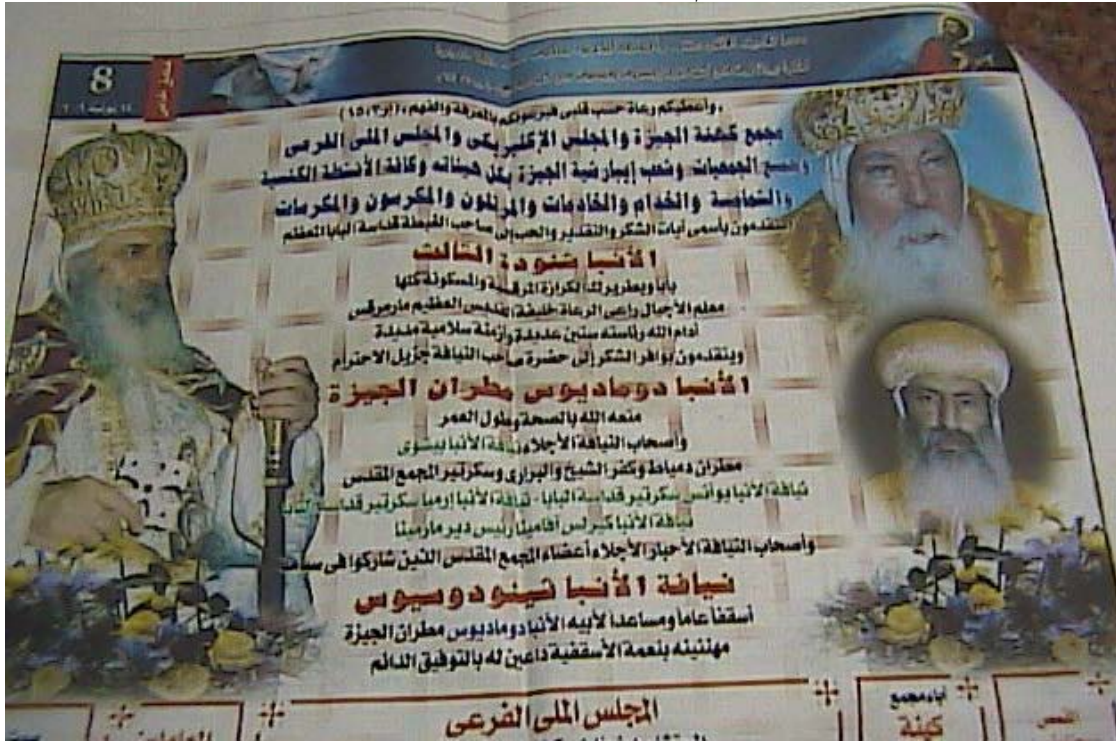 8
، وأعطيكم رعاة حسب قلبي فيرعونكم بالمعرفة والفهم ، (إر٣: ١٥)
مجمع كهنة الجيزة والمجلس الإكليريكى والمجلس الملى الفرعى
الجمعيات وشعب إيبارشية الجيزة بكل هيئاته وكافة الأنشطة الكنسية
والشمامسة والخدام والخادمات والمرتلون والمكرسون والمكرسات
يتقدمون بأسمى آيات الشكر والتقدير والحب إلى صاحب الغبطة قداسة البابا المعظم
الأنبا شنودة الثالث
بابا وبطريرك الكرازة المرقسية والمسكونة كلها
معلم الأجيال راعى الرعاة خليفة القديس العظيم مارمرقس
أدام الله رئاسته سنين عديدة وأزمنة سلامية مديدة
ويتقدمون بوافر الشكر إلى حضرة صاحب النيافة جزيل الاحترام
الأنبا دوماديوس مطران الجيزة
متعه الله بالصحة وطول العمر
وأصحاب النيافة الأجلاء نيافة الأنبا بيشوى
مطران دمياط وكفر الشيخ والبرارى وسكرتير المجمع المقدس
نيافة الأنبا يوأنس سكرتير قداسة البابا - نيافة الأنبا إرميا سكرتير قداسة البابا
نيافة الأنبا كيرلس أفامينا رئيس دير مارمينا
وأصحاب النيافة الأحبار الأجلاء أعضاء المجمع المقدس الذين شاركوا فى سيامة
نيافة الأنبا ثيئودوسيوس
أسقفاً عاماً ومساعداً لأبيه الأنبا دوماديوس مطران الجيزة
مهنئينه بنعمة الأسقفية داعين له بالتوفيق الدائم
المجلس الملى الفرعى
آباء مجمع
كهنة
القس